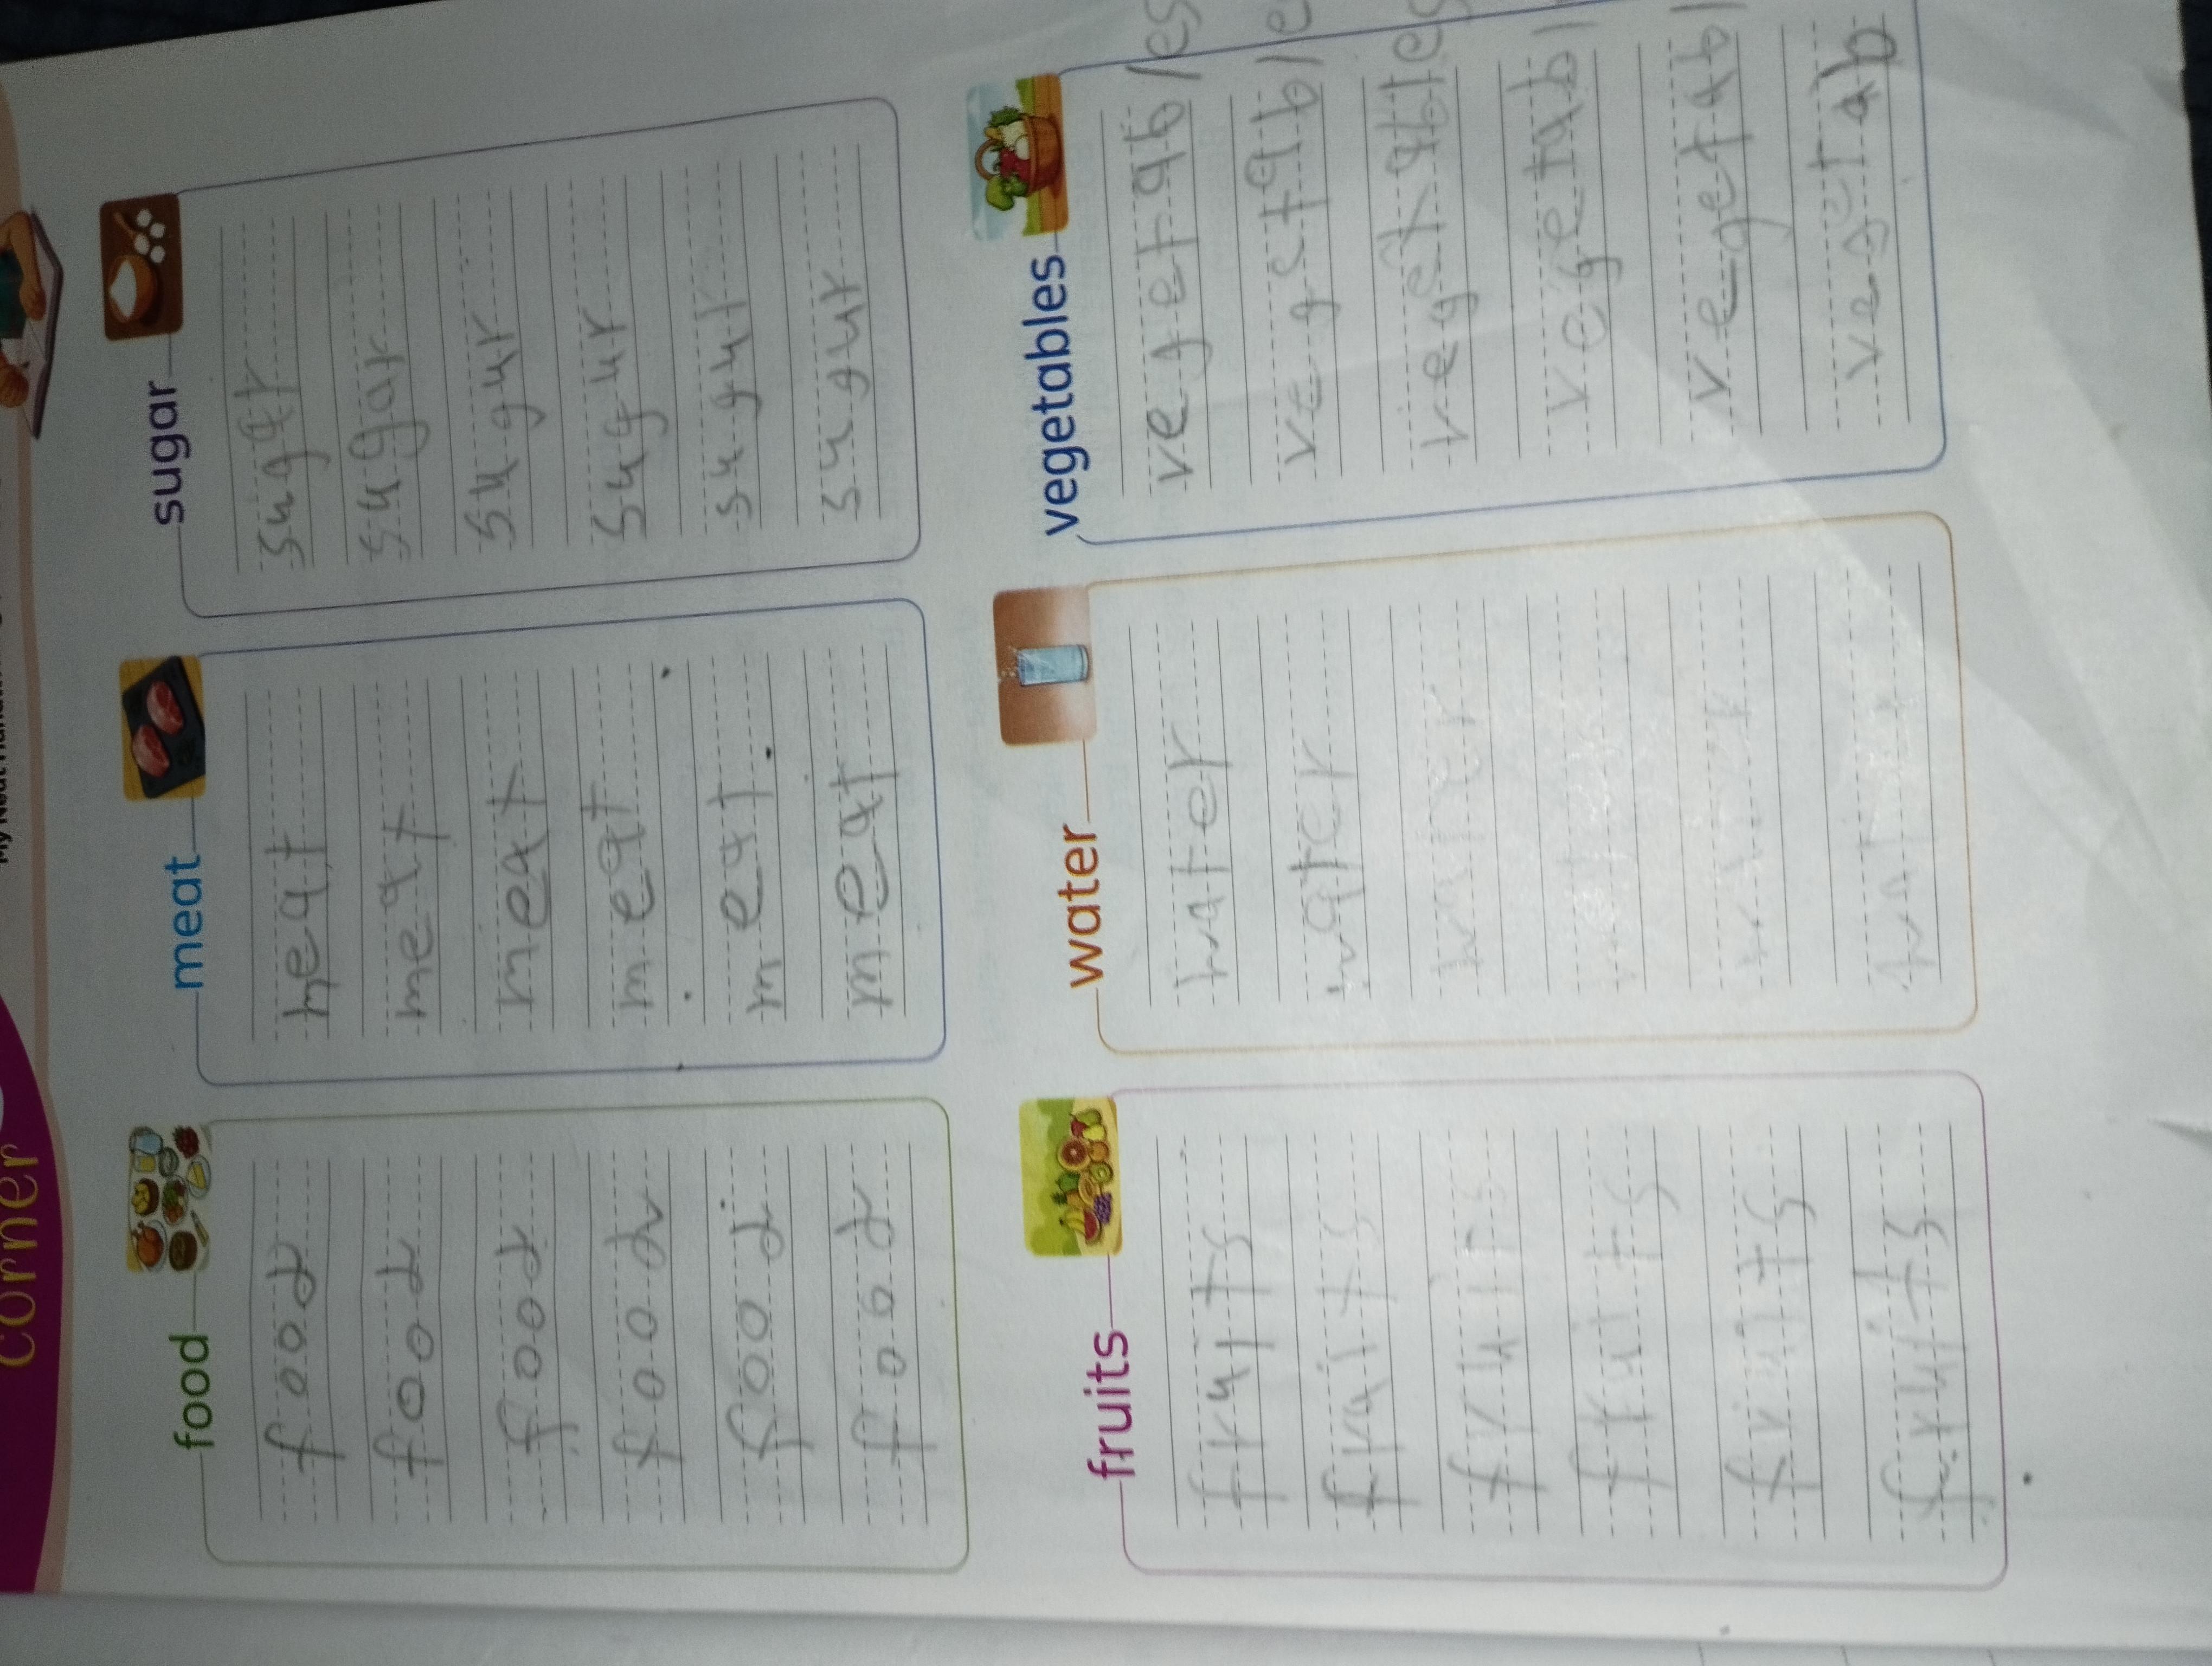 corner
food
food
food
food
food
food
food
meat
meat
meat
meat
meat
meat
meat
sugar
sugar
sugar
sugur
sugur
sugur
sugur
fruits
fruits
fruits
fruits
fruits
fruits
fruits
water
water
water
water
vegetables
vegetables
vegetable
vegetables
vegetabl
vegetabl
vegetab